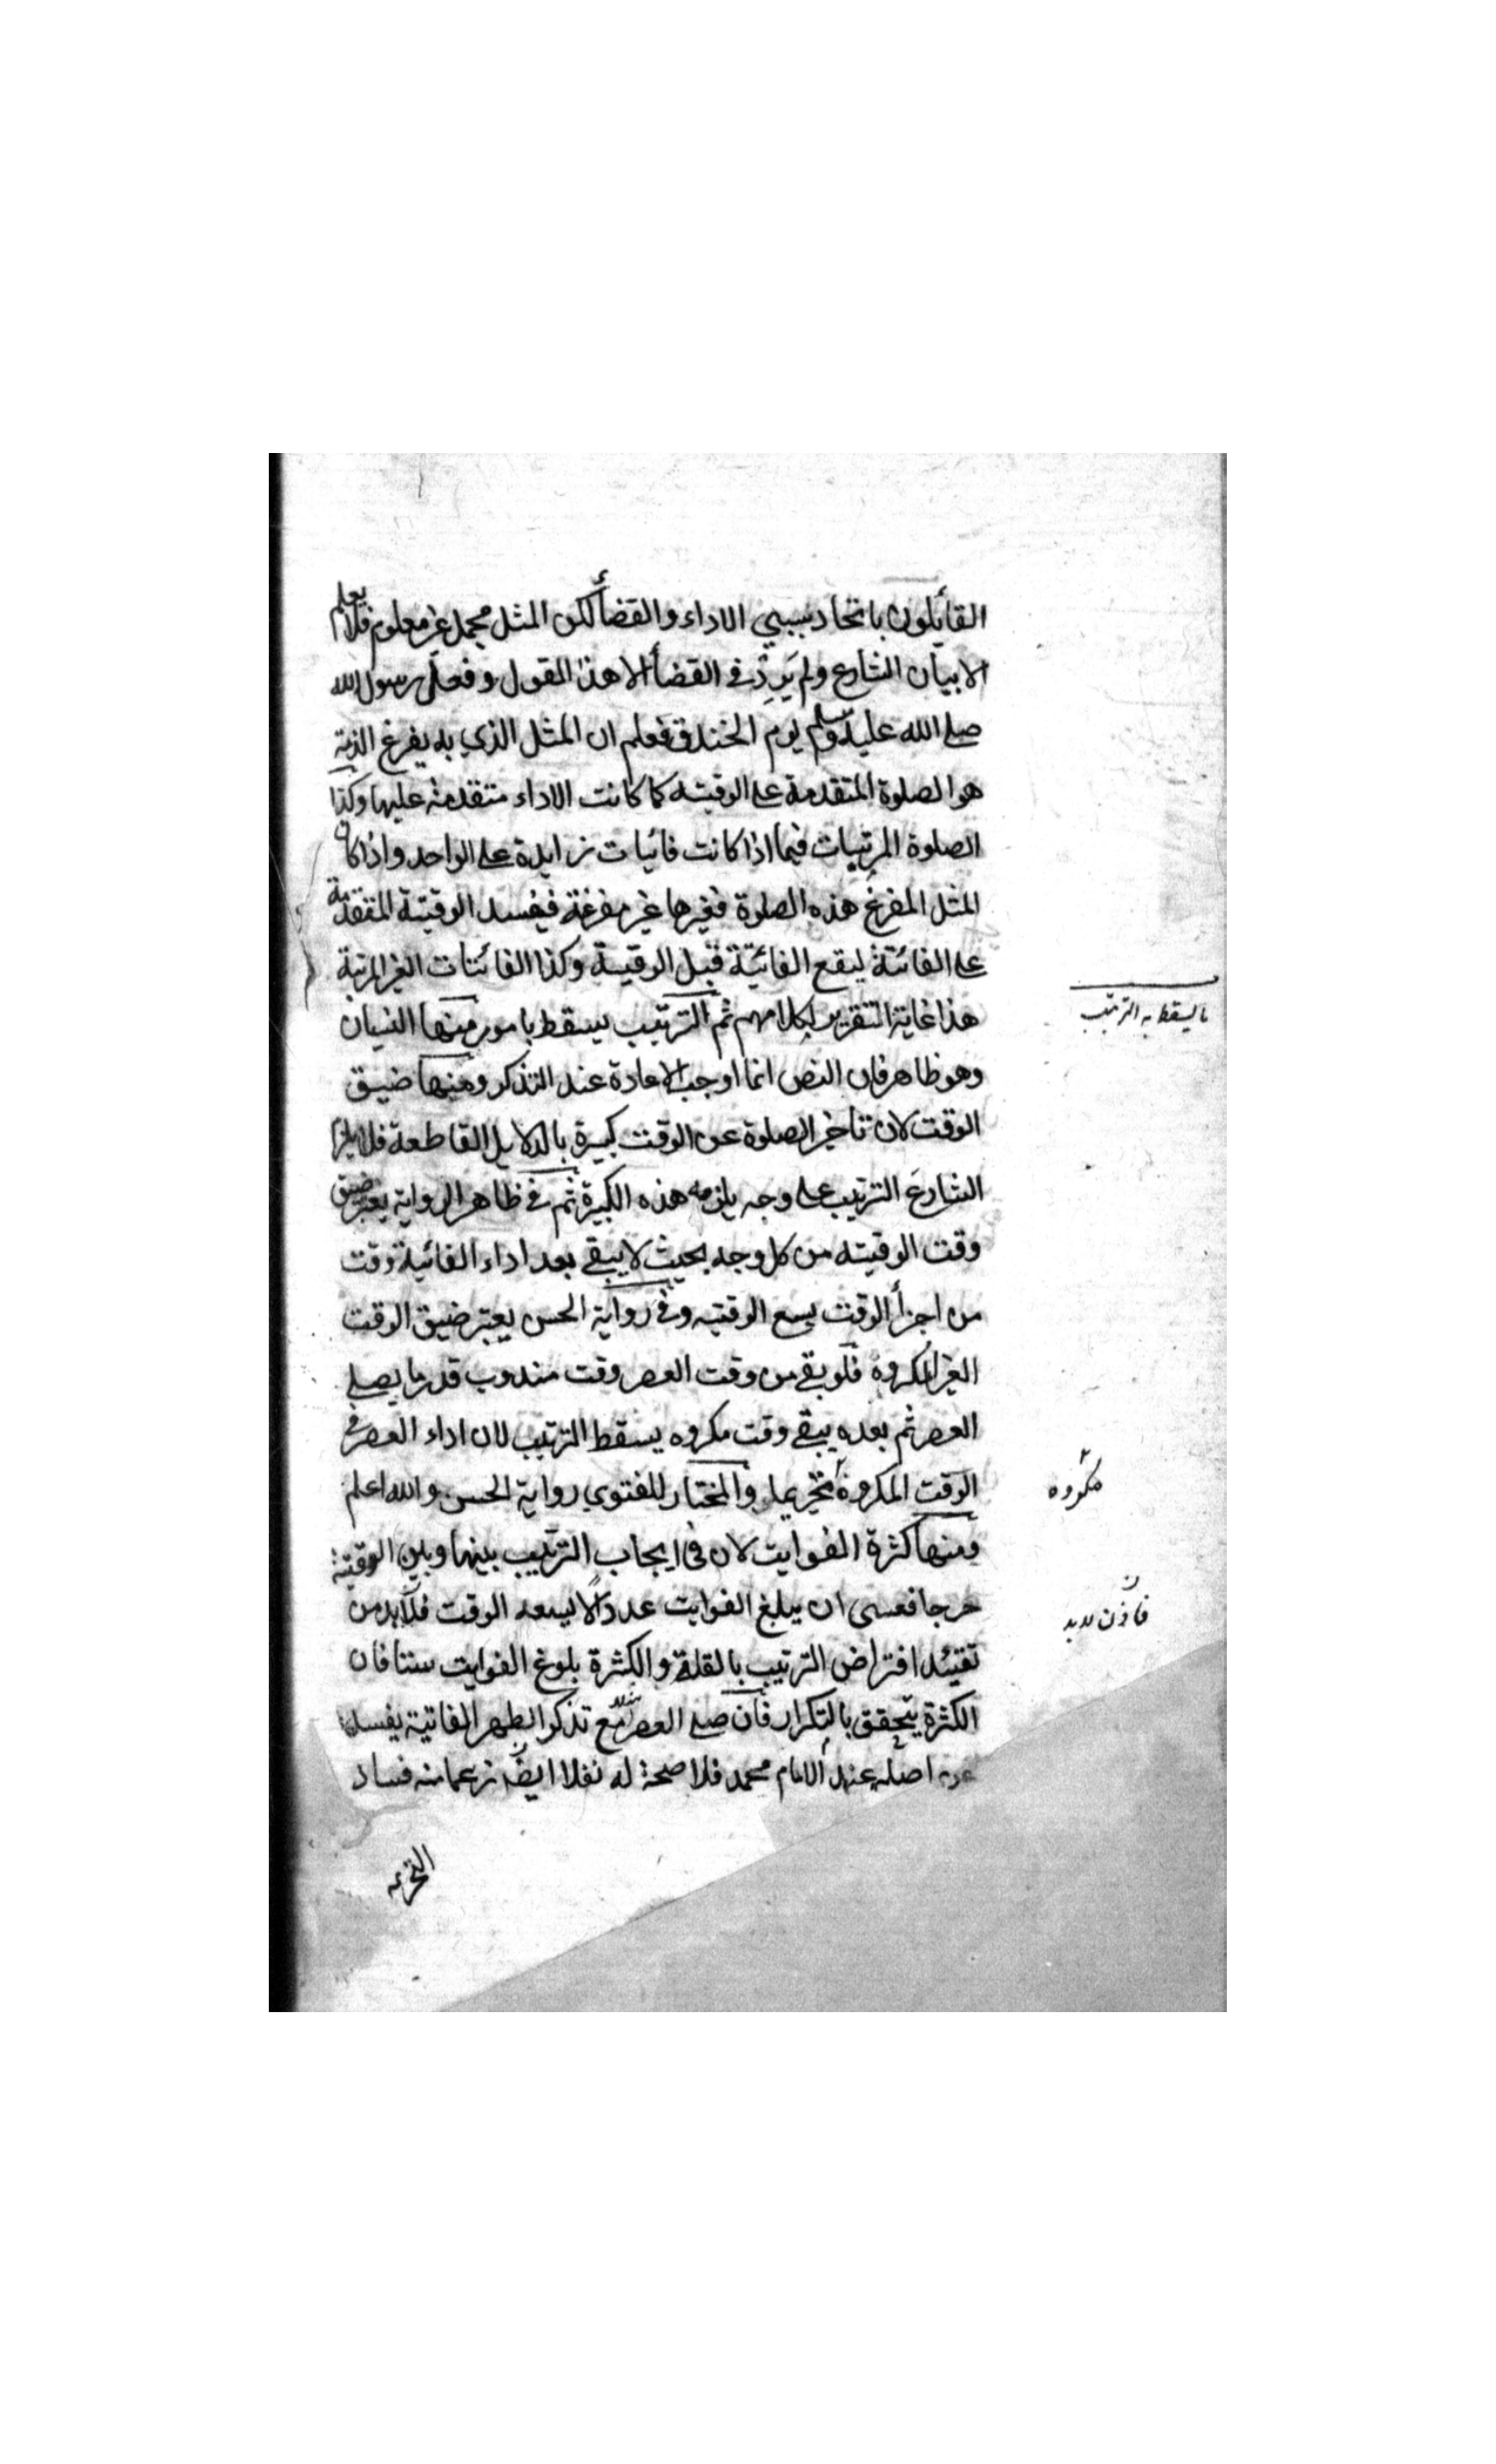 القائلون باتحاد سببي الاداء والقضأ لكن المثل مجمل غير معلوم فلا يعلم
الا ببيان الشارع ولم يَرِدْ في القضأ الا هذا القول وفعل رسول الله
صلى الله عليه وسلم يوم الخندق فعلم ان المثل الذي به يفرغ الذمة
هو الصلوة المتقدمة على الوقتية كما كانت الاداء متقدمة عليها وكذا
الصلوة المرتبات فيما اذا كانت فائتات زايدة على الواحد واذا كان
المثل المفرغ هذه الصلوة فغيرها غير مفرغة فيفسد الوقتية المتقدمة
على الفائتة ليقع الفائتة قبل الوقتية وكذا الفائتات الغير المرتبة
هذا غاية التقرير لكلامهم ثم الترتيب يسقط بامور منها النسيان
وهو ظاهر فان النص انما اوجب الاعادة عند التذكر ومنها ضيق
الوقت لان تأخير الصلوة عن الوقت كبيرة بالدلايل القاطعة فلا
الشارع الترتيب على وجه يلزمه هذه الكبيرة ثم في ظاهر الرواية يعتبر ضيق
وقت الوقتية من كل وجه بحيث لا يبقى بعد اداء الفائتة وقت
من اجزأ الوقت يسع الوقتيه وفي رواية الحسن يعتبر ضيق الوقت
الغير المكروه فلو بقي من وقت العصر وقت مندوب قدر ما يصلي
العصر ثم بعده يبقى وقت مكروه يسقط الترتيب لان اداء العصر في
الوقت المكروه تحريما والمختار للفتوي رواية الحسن والله اعلم
ومنها كثرة الفوايت لان في ايجاب الترتيب بينها وبين الوقتية
حرجا فعسى ان يبلغ الفوايت عددًا لا يسعه الوقت فلا بد من
تقييد افتراض الترتيب بالقلة والكثرة بلوغ الفوايت ستا فان
الكثرة يتحقق بالتكرار فان صلى العصر مثلا مع تذكر الظهر الفائتة يفسد
اصله عند الامام محمد فلا صحة له نفلا ايضا زعما منه فساد
التحريمه
ما يسقط به الترتيب
مكروه